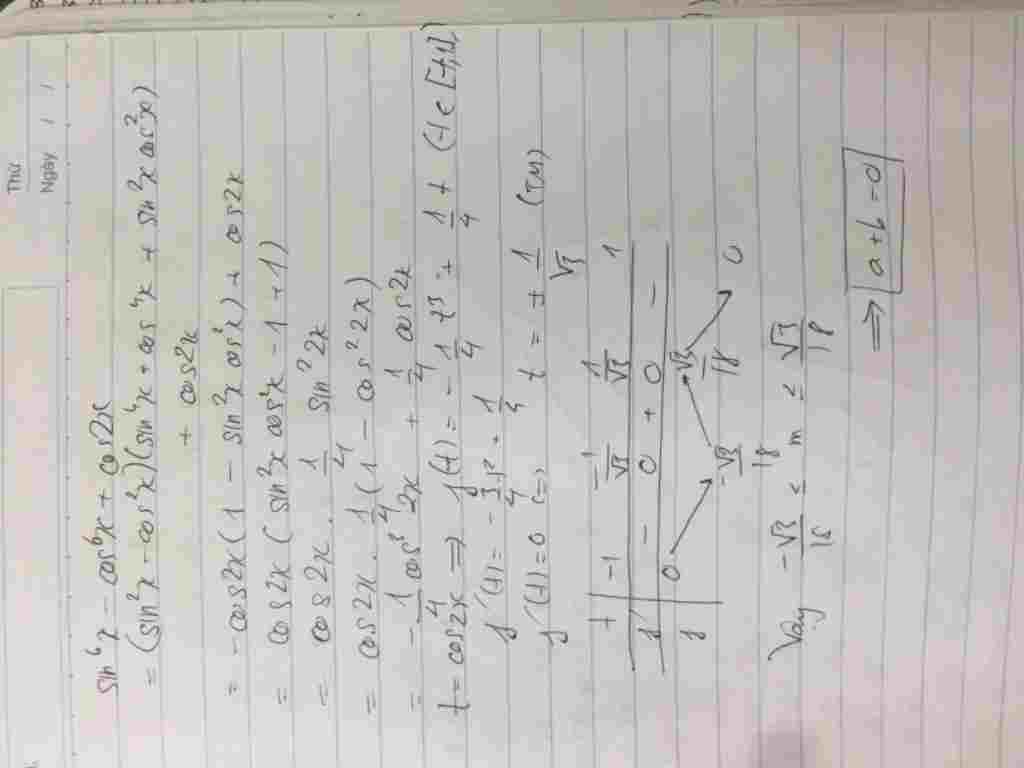 Thứ
Ngày / /
sin⁶x - cos⁶x + cos2x
= (sin²x - cos²x)(sin⁴x + cos⁴x + sin²x cos²x)
+ cos2x
= -cos2x(1 - sin²x cos²x) + cos2x
= cos2x(sin²x cos²x - 1 + 1)
= cos2x . 1/4 sin²2x
= cos2x . 1/4 (1 - cos²2x)
= -1/4 cos³2x + 1/4 cos2x
t = cos2x ⇒ f(t) = -1/4 t³ + 1/4 t (t ∈ [-1,1])
f'(t) = -3/4 t² + 1/4
f'(t) = 0 ⇔ t = ± 1/√3 (TM)
t | -1 -1/√3 1/√3 1
f' | - 0 + 0 -
f | 0 -√3/18 √3/18 0
Vậy -√3/18 ≤ m ≤ √3/18
⇒ a + b = 0